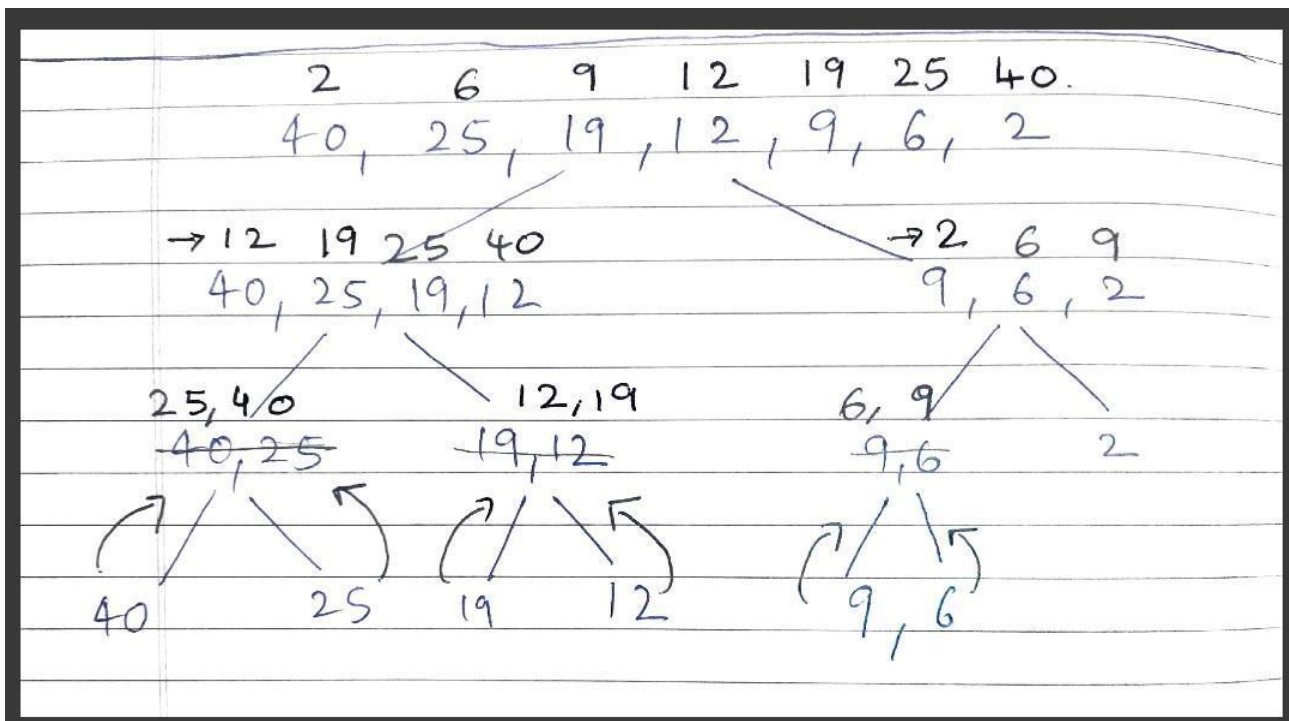 2 6 9 12 19 25 40.
40, 25, 19, 12, 9, 6, 2
→12 19 25 40 →2 6 9
40, 25, 19, 12 9, 6, 2
25, 40 12, 19 6, 9
40, 25 19, 12 9, 6 2
40 25 19 12 9, 6